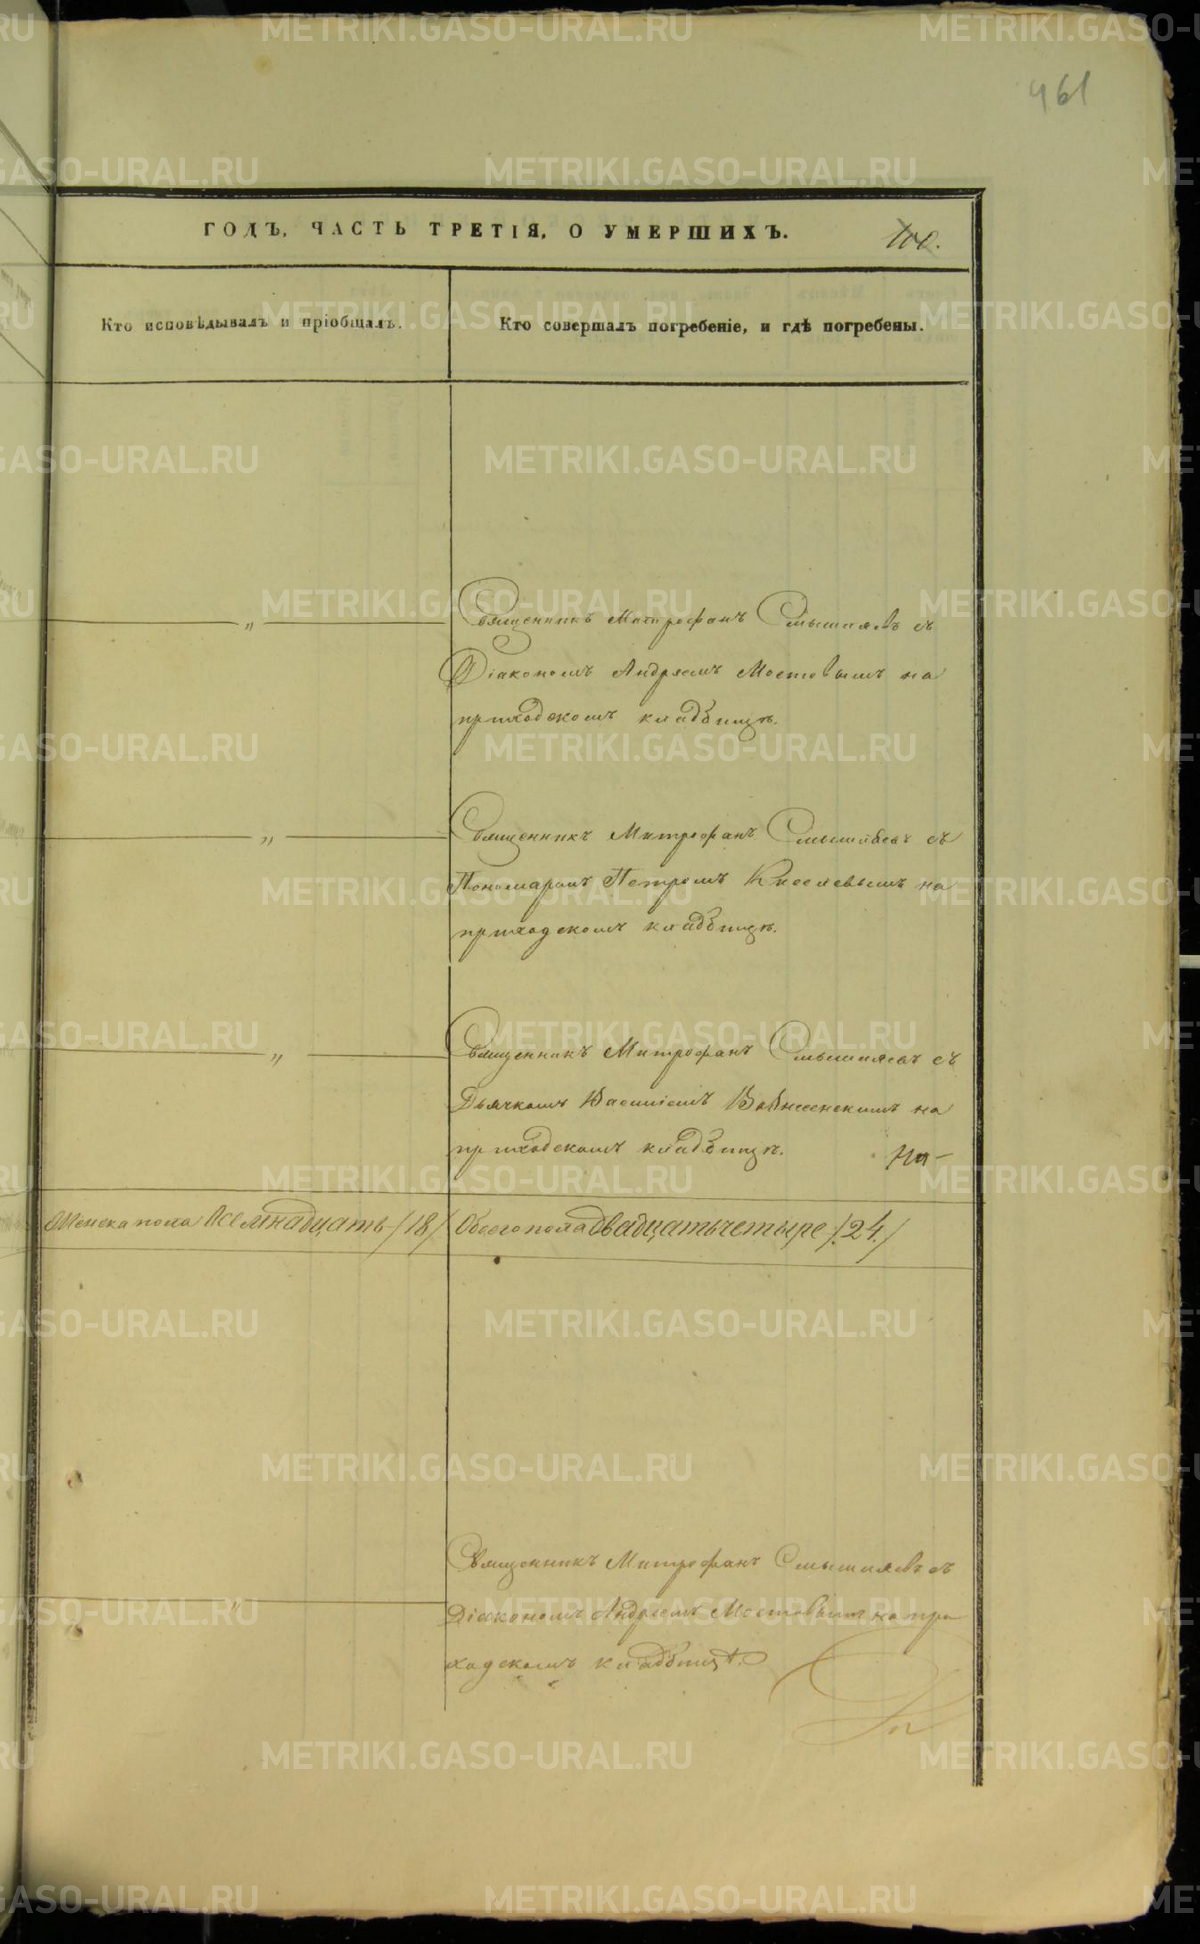 461
ГОДЪ, ЧАСТЬ ТРЕТІЯ, О УМЕРШИХЪ.
100.
Кто исповѣдывалъ и пріобщалъ.
Кто совершалъ погребеніе, и гдѣ погребены.
„
Священникъ Митрофанъ Смышляевъ съ
Діакономъ Андреемъ Мостовымъ на
приходскомъ кладбищѣ.
„
Священникъ Митрофанъ Смышляевъ съ
Пономаремъ Петромъ Киселевымъ на
приходскомъ кладбищѣ.
„
Священникъ Митрофанъ Смышляевъ съ
Дьячкомъ Василіемъ Вознесенскимъ на
приходскомъ кладбищѣ.
Женска пола Осемнадцать /18/
Обоего пола двадцать четыре /24./
„
Священникъ Митрофанъ Смышляевъ съ
Діакономъ Андреемъ Мостовымъ на при
ходскомъ кладбищѣ.
METRIKI.GASO-URAL.RU